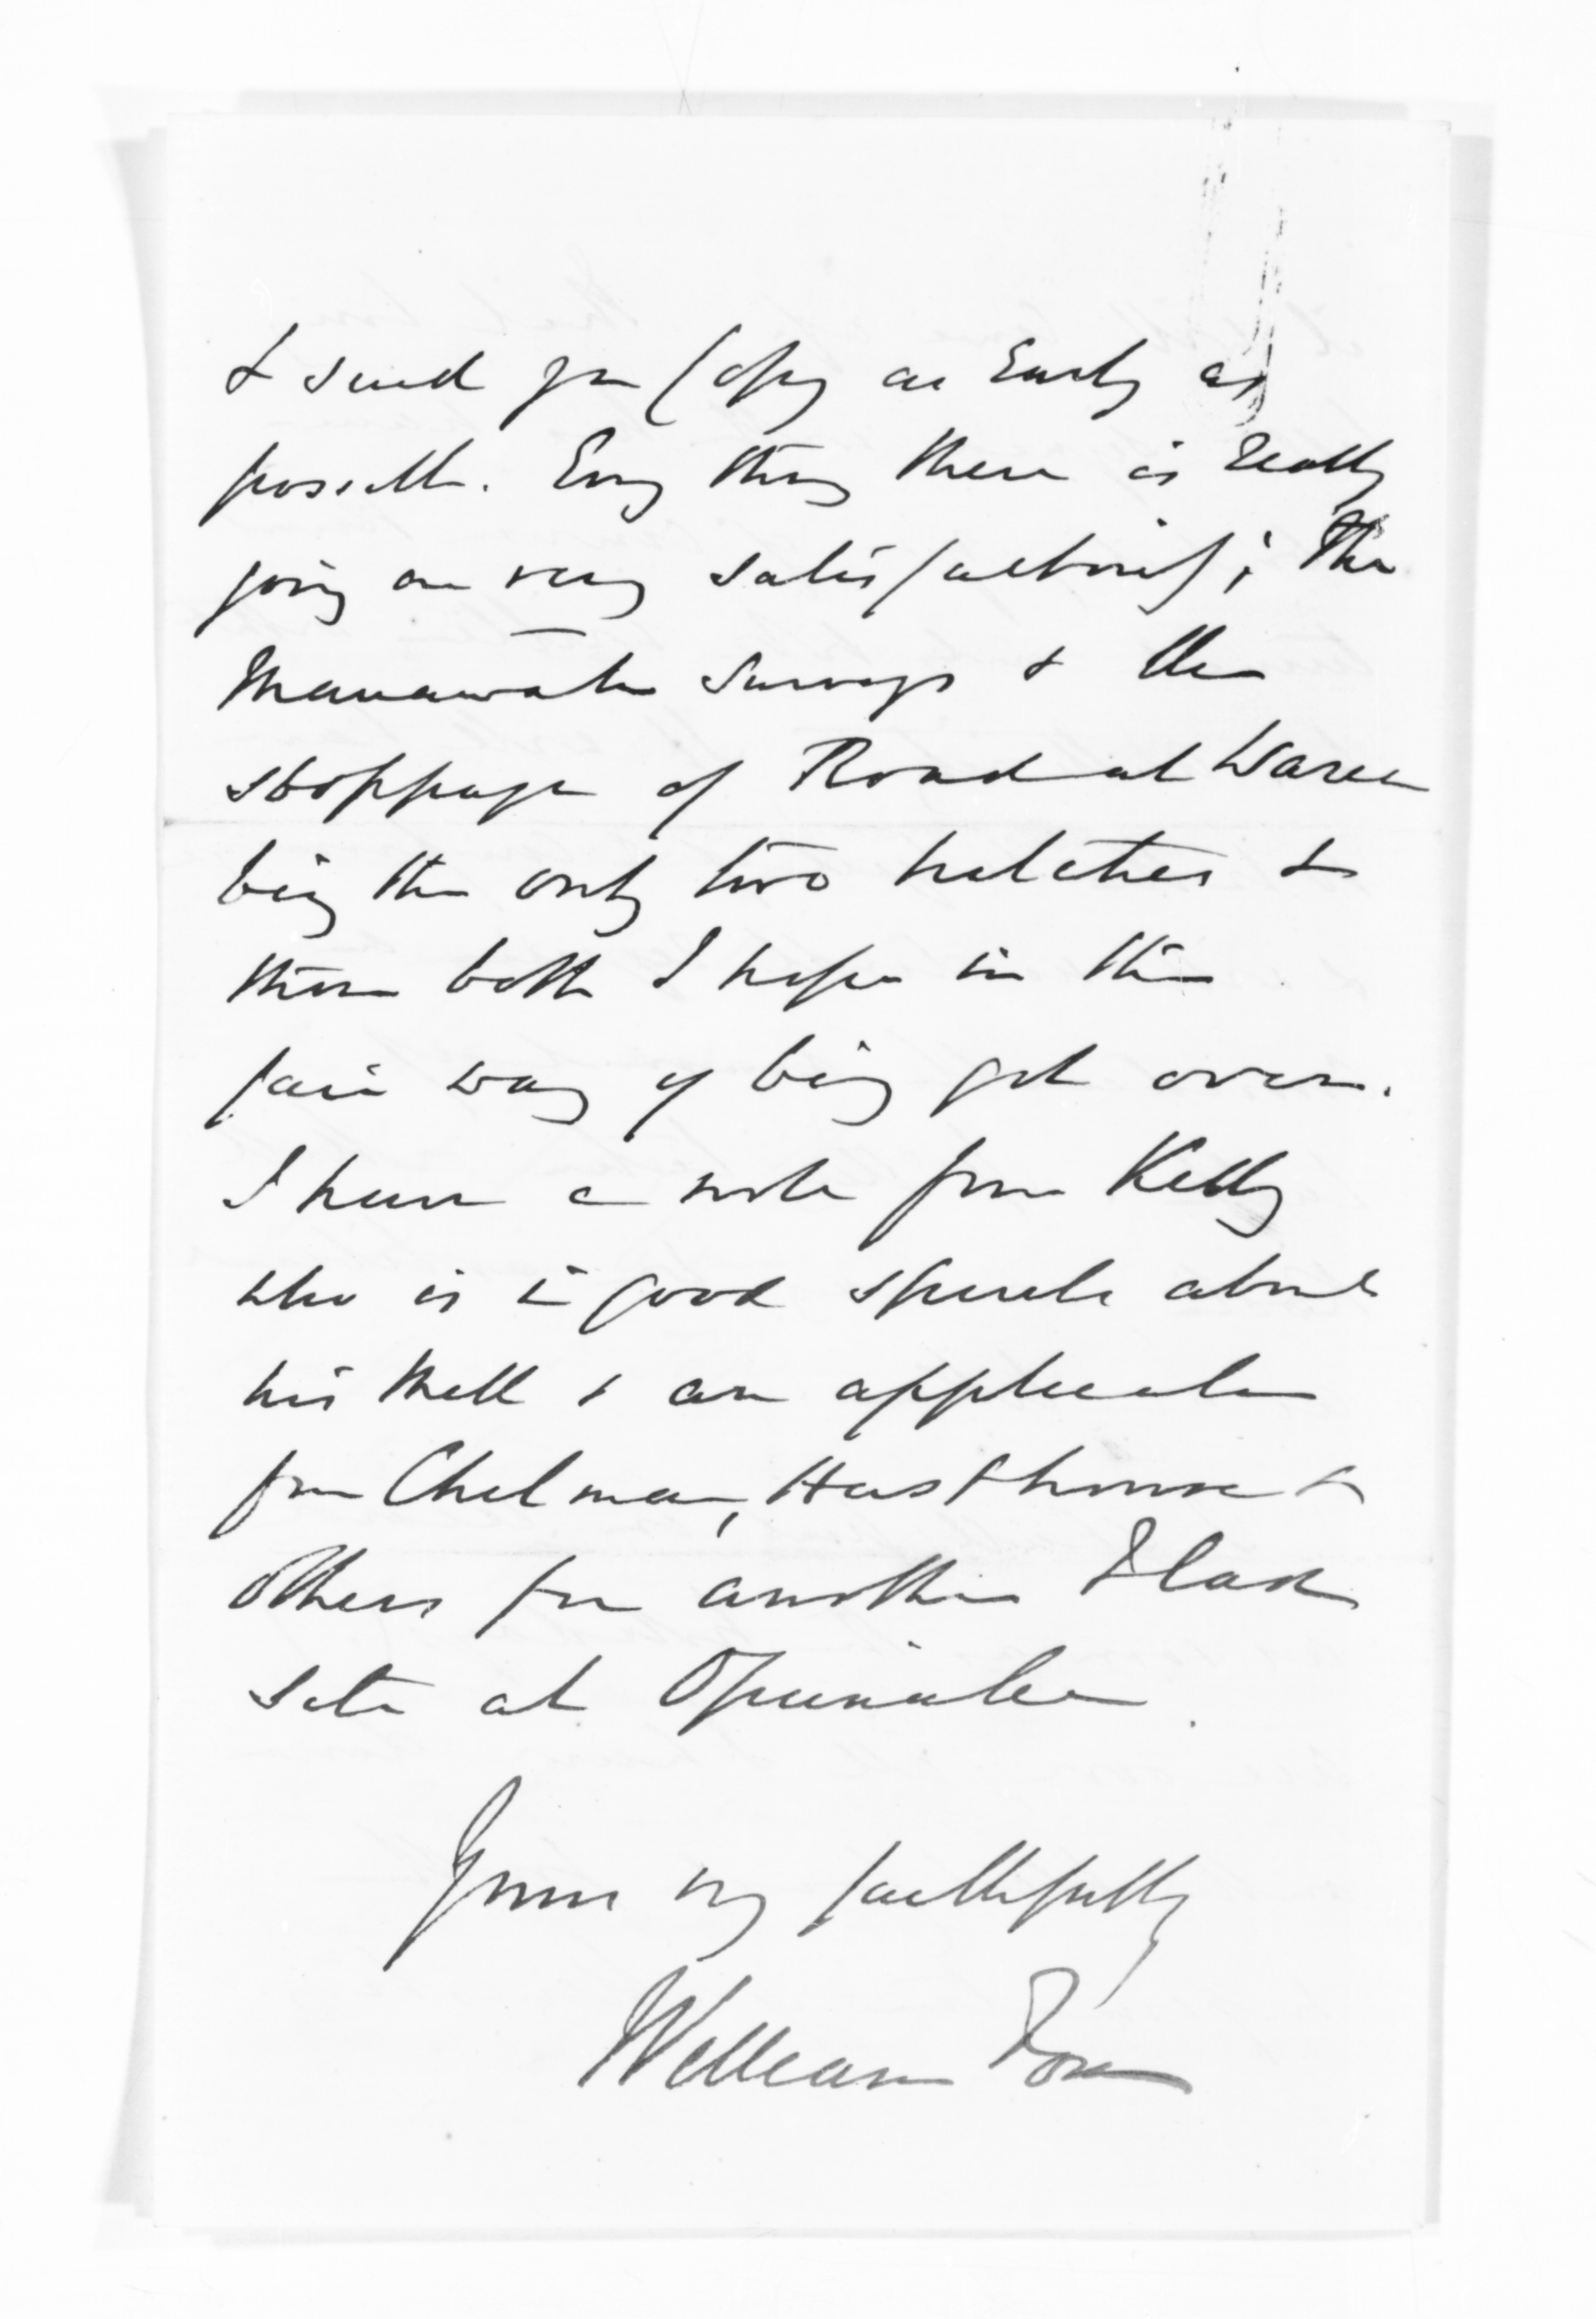 & send you Copy as Early as
possible. Every thing there is really
going on very satisfactorily; The
Manawatu surveys & the
stoppage of Road at Warea
being the only two hitches &
these both I hope in the
fair way of being got over.
I have a note from Kelly
who is in good spirits about
his Mill & an application
from Chilman, Hursthouse &
others for another Flax
site at Opunake.
Yours very faithfully
William Fox